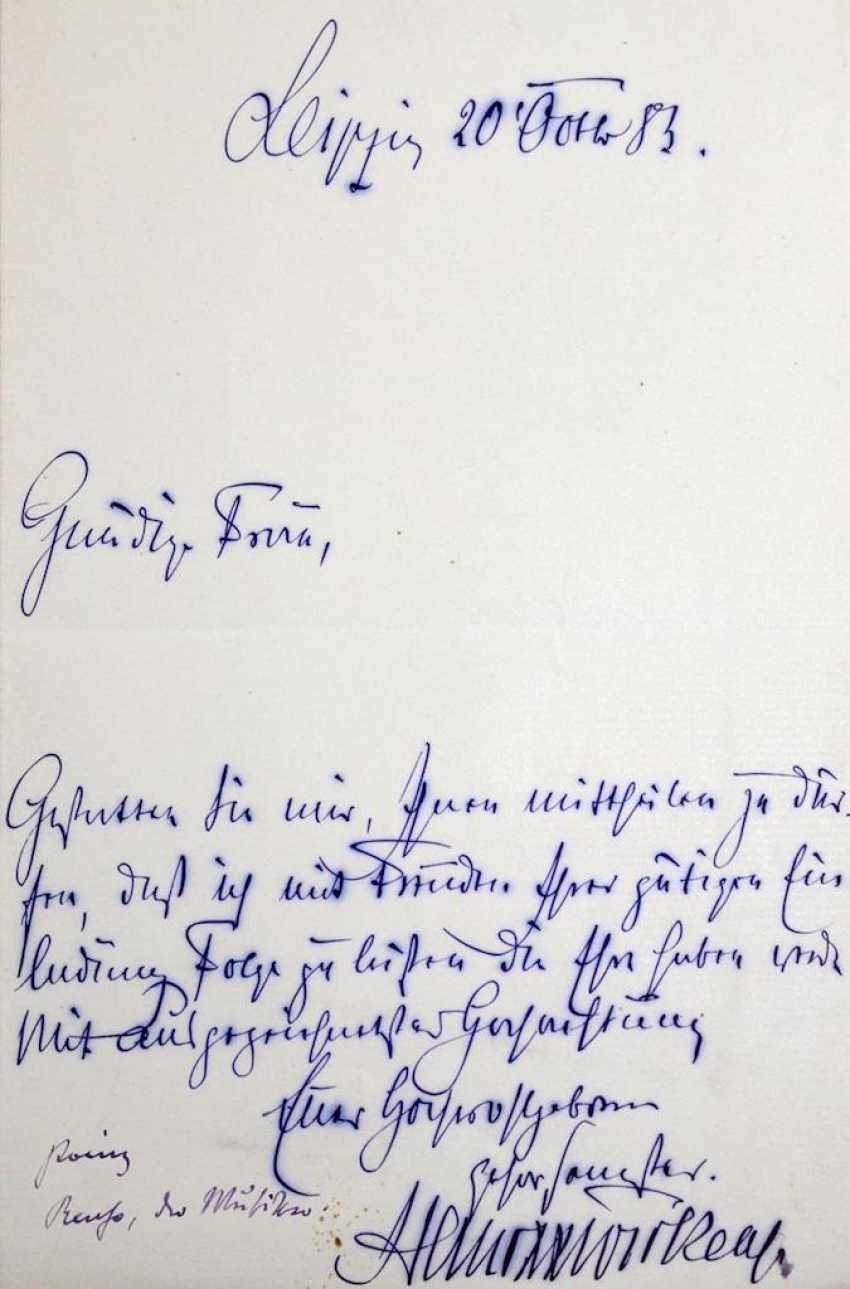 Leipzig 20 Octbr 83.
Gnädige Frau,
Gestatten Sie mir, Ihnen mittheilen zu dür-
fen, daß ich mit Freuden Ihrer gütigen Ein
ladung Folge zu leisten die Ehre haben werde
Mit ausgezeichnetster Hochachtung
Euer Hochwohlgeboren
gehorsamster.
der Musiker